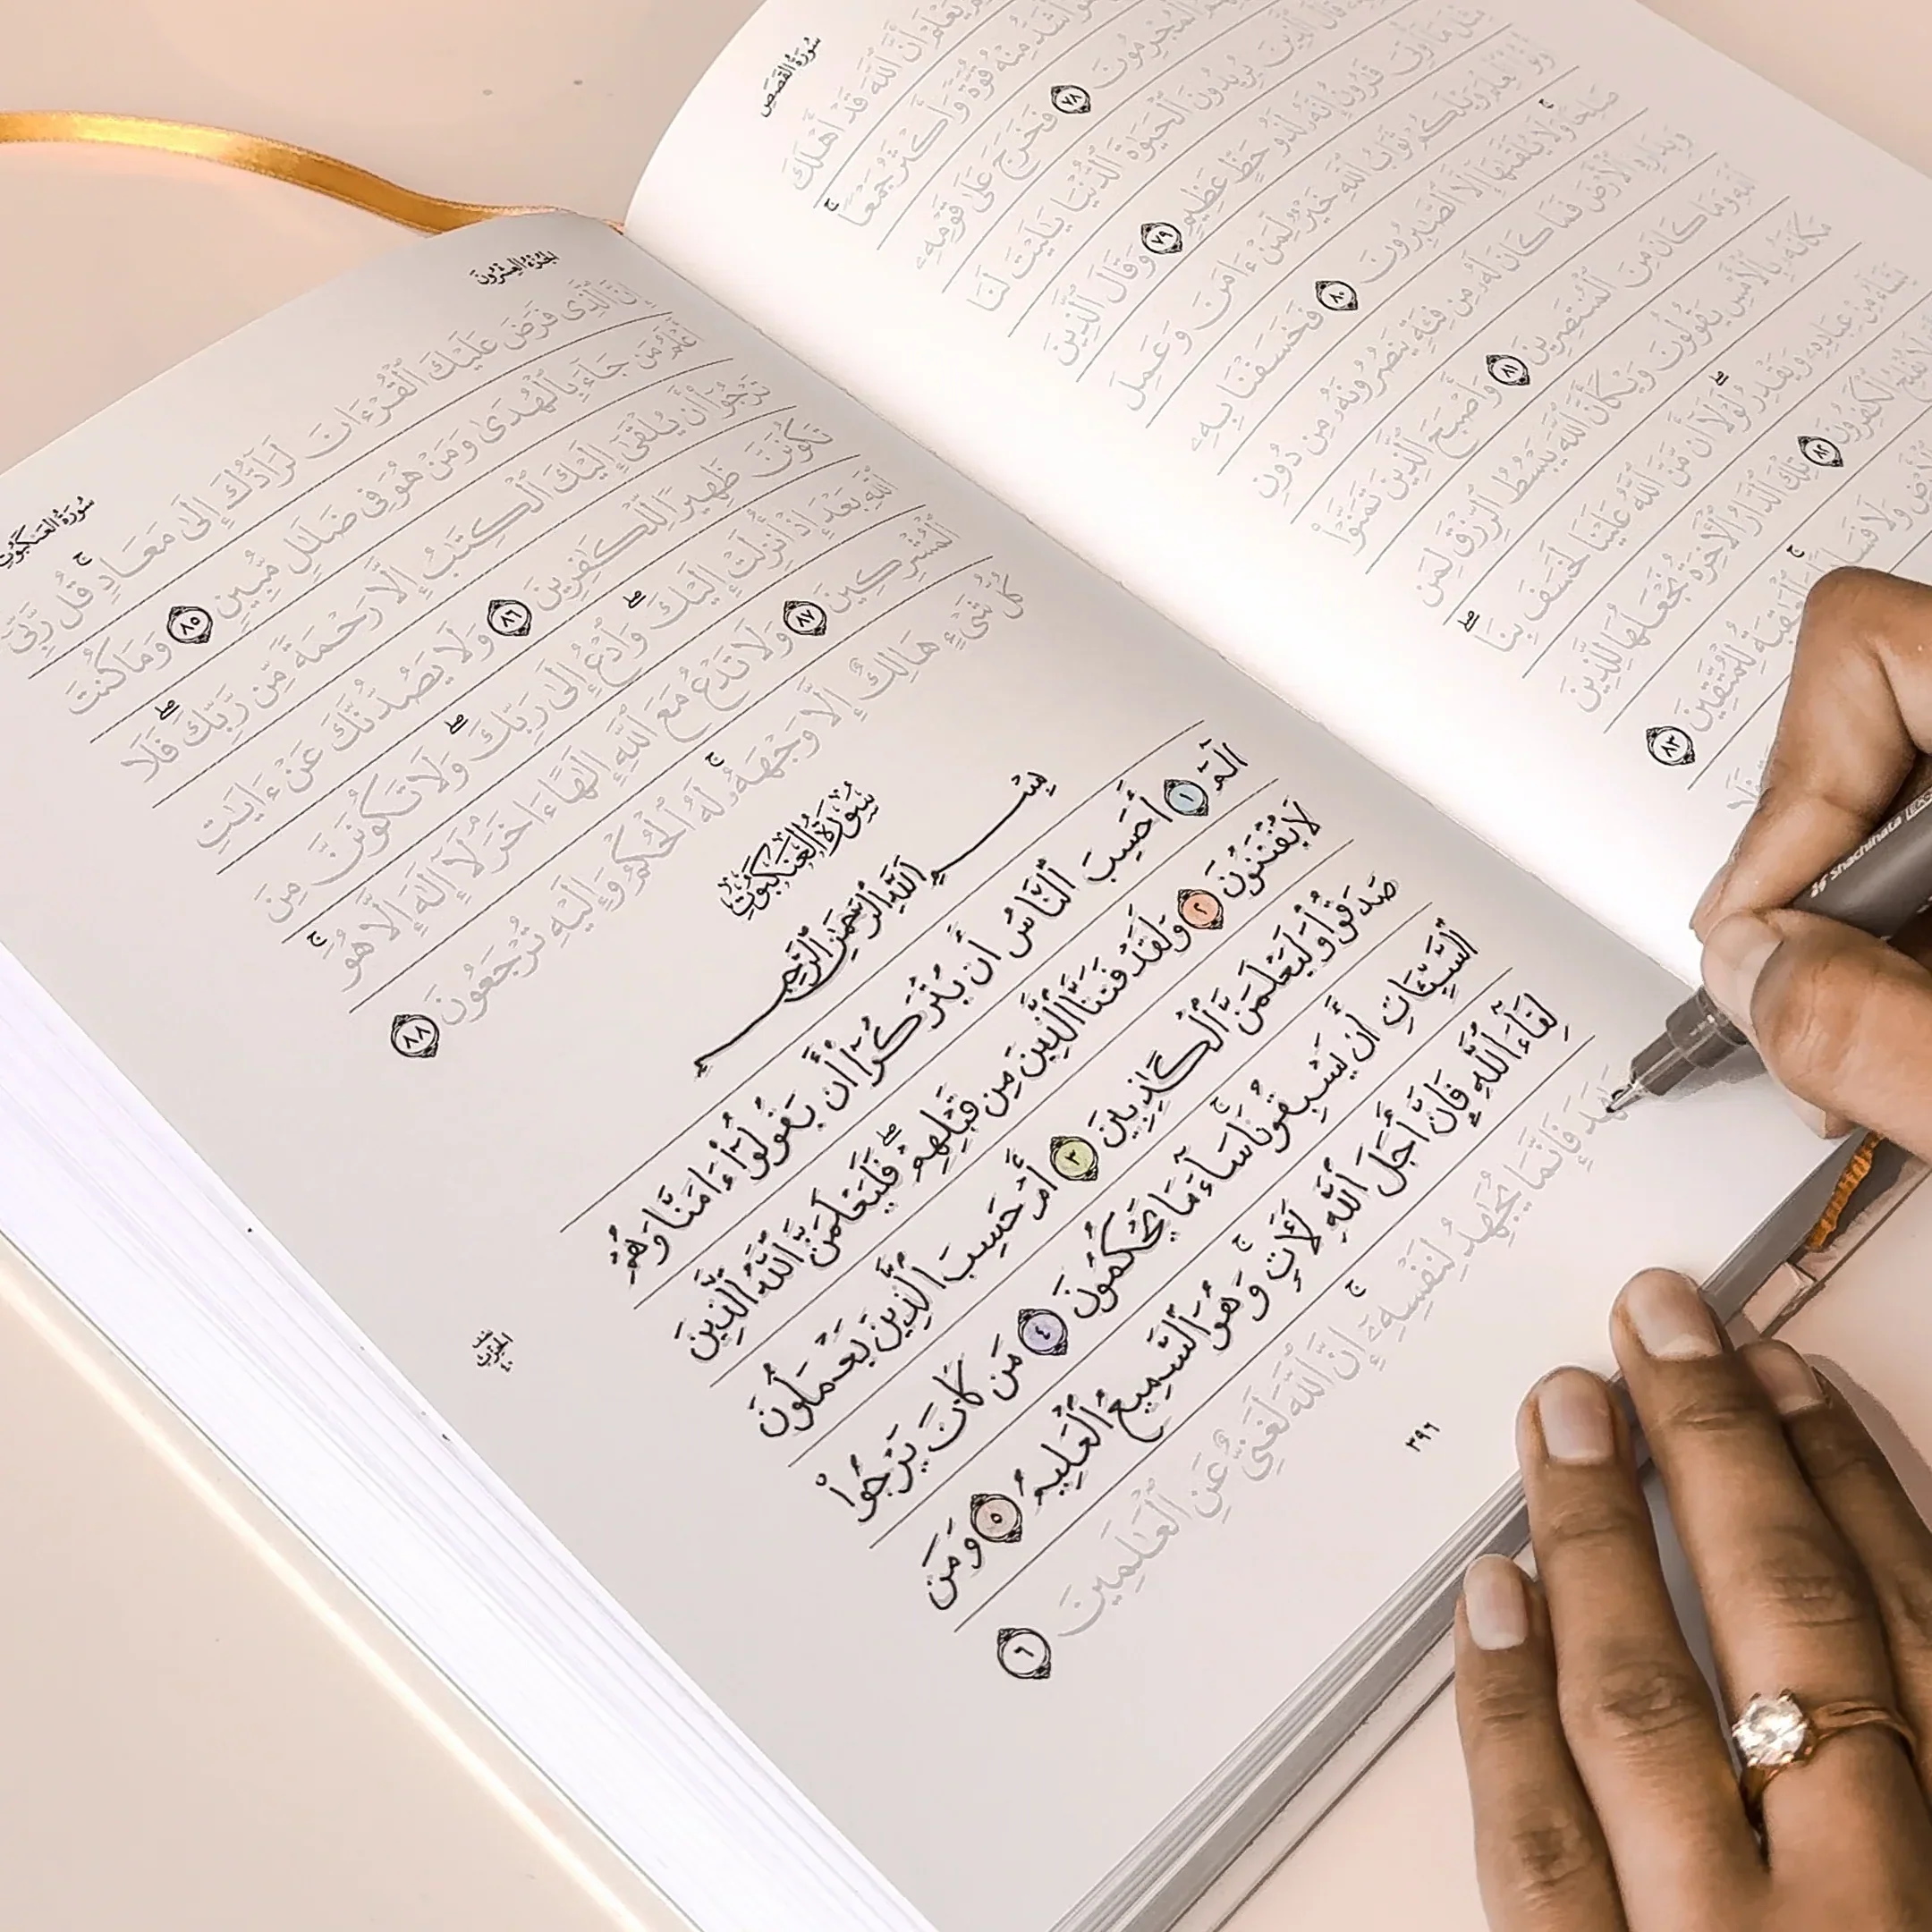 سُورَةُ القَصَصِ
يَعْلَمْ أَنَّ ٱللَّهَ قَدْ أَهْلَكَ
أَشَدُّ مِنْهُ قُوَّةً وَأَكْثَرُ جَمْعًا ۚ
ٱلْمُجْرِمُونَ ٧٨ فَخَرَجَ عَلَىٰ قَوْمِهِۦ
قَالَ ٱلَّذِينَ يُرِيدُونَ ٱلْحَيَوٰةَ ٱلدُّنْيَا يَٰلَيْتَ لَنَا
مِثْلَ مَآ أُوتِىَ قَٰرُونُ إِنَّهُۥ لَذُو حَظٍّ عَظِيمٍ ٧٩ وَقَالَ ٱلَّذِينَ
أُوتُوا۟ ٱلْعِلْمَ وَيْلَكُمْ ثَوَابُ ٱللَّهِ خَيْرٌ لِّمَنْ ءَامَنَ وَعَمِلَ
صَٰلِحًا ۚ وَلَا يُلَقَّىٰهَآ إِلَّا ٱلصَّٰبِرُونَ ٨٠ فَخَسَفْنَا بِهِۦ
وَبِدَارِهِ ٱلْأَرْضَ فَمَا كَانَ لَهُۥ مِن فِئَةٍ يَنصُرُونَهُۥ مِن دُونِ
ٱللَّهِ وَمَا كَانَ مِنَ ٱلْمُنتَصِرِينَ ٨١ وَأَصْبَحَ ٱلَّذِينَ تَمَنَّوْا۟
مَكَانَهُۥ بِٱلْأَمْسِ يَقُولُونَ وَيْكَأَنَّ ٱللَّهَ يَبْسُطُ ٱلرِّزْقَ لِمَن
يَشَآءُ مِنْ عِبَادِهِۦ وَيَقْدِرُ ۖ لَوْلَآ أَن مَّنَّ ٱللَّهُ عَلَيْنَا لَخَسَفَ بِنَا ۖ
لَا يُفْلِحُ ٱلْكَٰفِرُونَ ٨٢ تِلْكَ ٱلدَّارُ ٱلْءَاخِرَةُ نَجْعَلُهَا لِلَّذِينَ
ٱلْأَرْضِ وَلَا فَسَادًا ۚ وَٱلْعَٰقِبَةُ لِلْمُتَّقِينَ ٨٣
الجُزْءُ العِشْرُونَ
سُورَةُ العَنكَبُوتِ
إِنَّ ٱلَّذِى فَرَضَ عَلَيْكَ ٱلْقُرْءَانَ لَرَآدُّكَ إِلَىٰ مَعَادٍ ۚ قُل رَّبِّىٓ
أَعْلَمُ مَن جَآءَ بِٱلْهُدَىٰ وَمَنْ هُوَ فِى ضَلَٰلٍ مُّبِينٍ ٨٥ وَمَا كُنتَ
تَرْجُوٓا۟ أَن يُلْقَىٰٓ إِلَيْكَ ٱلْكِتَٰبُ إِلَّا رَحْمَةً مِّن رَّبِّكَ ۖ فَلَا
تَكُونَنَّ ظَهِيرًا لِّلْكَٰفِرِينَ ٨٦ وَلَا يَصُدُّنَّكَ عَنْ ءَايَٰتِ
ٱللَّهِ بَعْدَ إِذْ أُنزِلَتْ إِلَيْكَ ۖ وَٱدْعُ إِلَىٰ رَبِّكَ ۖ وَلَا تَكُونَنَّ مِنَ
ٱلْمُشْرِكِينَ ٨٧ وَلَا تَدْعُ مَعَ ٱللَّهِ إِلَٰهًا ءَاخَرَ ۘ لَآ إِلَٰهَ إِلَّا هُوَ ۚ
كُلُّ شَىْءٍ هَالِكٌ إِلَّا وَجْهَهُۥ ۚ لَهُ ٱلْحُكْمُ وَإِلَيْهِ تُرْجَعُونَ ٨٨
سُورَةُ العَنكَبُوتِ
بِسْمِ ٱللَّهِ ٱلرَّحْمَٰنِ ٱلرَّحِيمِ
الٓمٓ ١ أَحَسِبَ ٱلنَّاسُ أَن يُتْرَكُوٓا۟ أَن يَقُولُوٓا۟ ءَامَنَّا وَهُمْ
لَا يُفْتَنُونَ ٢ وَلَقَدْ فَتَنَّا ٱلَّذِينَ مِن قَبْلِهِمْ ۖ فَلَيَعْلَمَنَّ ٱللَّهُ ٱلَّذِينَ
صَدَقُوا۟ وَلَيَعْلَمَنَّ ٱلْكَٰذِبِينَ ٣ أَمْ حَسِبَ ٱلَّذِينَ يَعْمَلُونَ
ٱلسَّيِّـَٔاتِ أَن يَسْبِقُونَا ۚ سَآءَ مَا يَحْكُمُونَ ٤ مَن كَانَ يَرْجُوا۟
لِقَآءَ ٱللَّهِ فَإِنَّ أَجَلَ ٱللَّهِ لَـَٔاتٍ ۚ وَهُوَ ٱلسَّمِيعُ ٱلْعَلِيمُ ٥ وَمَن
جَٰهَدَ فَإِنَّمَا يُجَٰهِدُ لِنَفْسِهِۦٓ ۚ إِنَّ ٱللَّهَ لَغَنِىٌّ عَنِ ٱلْعَٰلَمِينَ ٦
٣٩٦
Shachihata